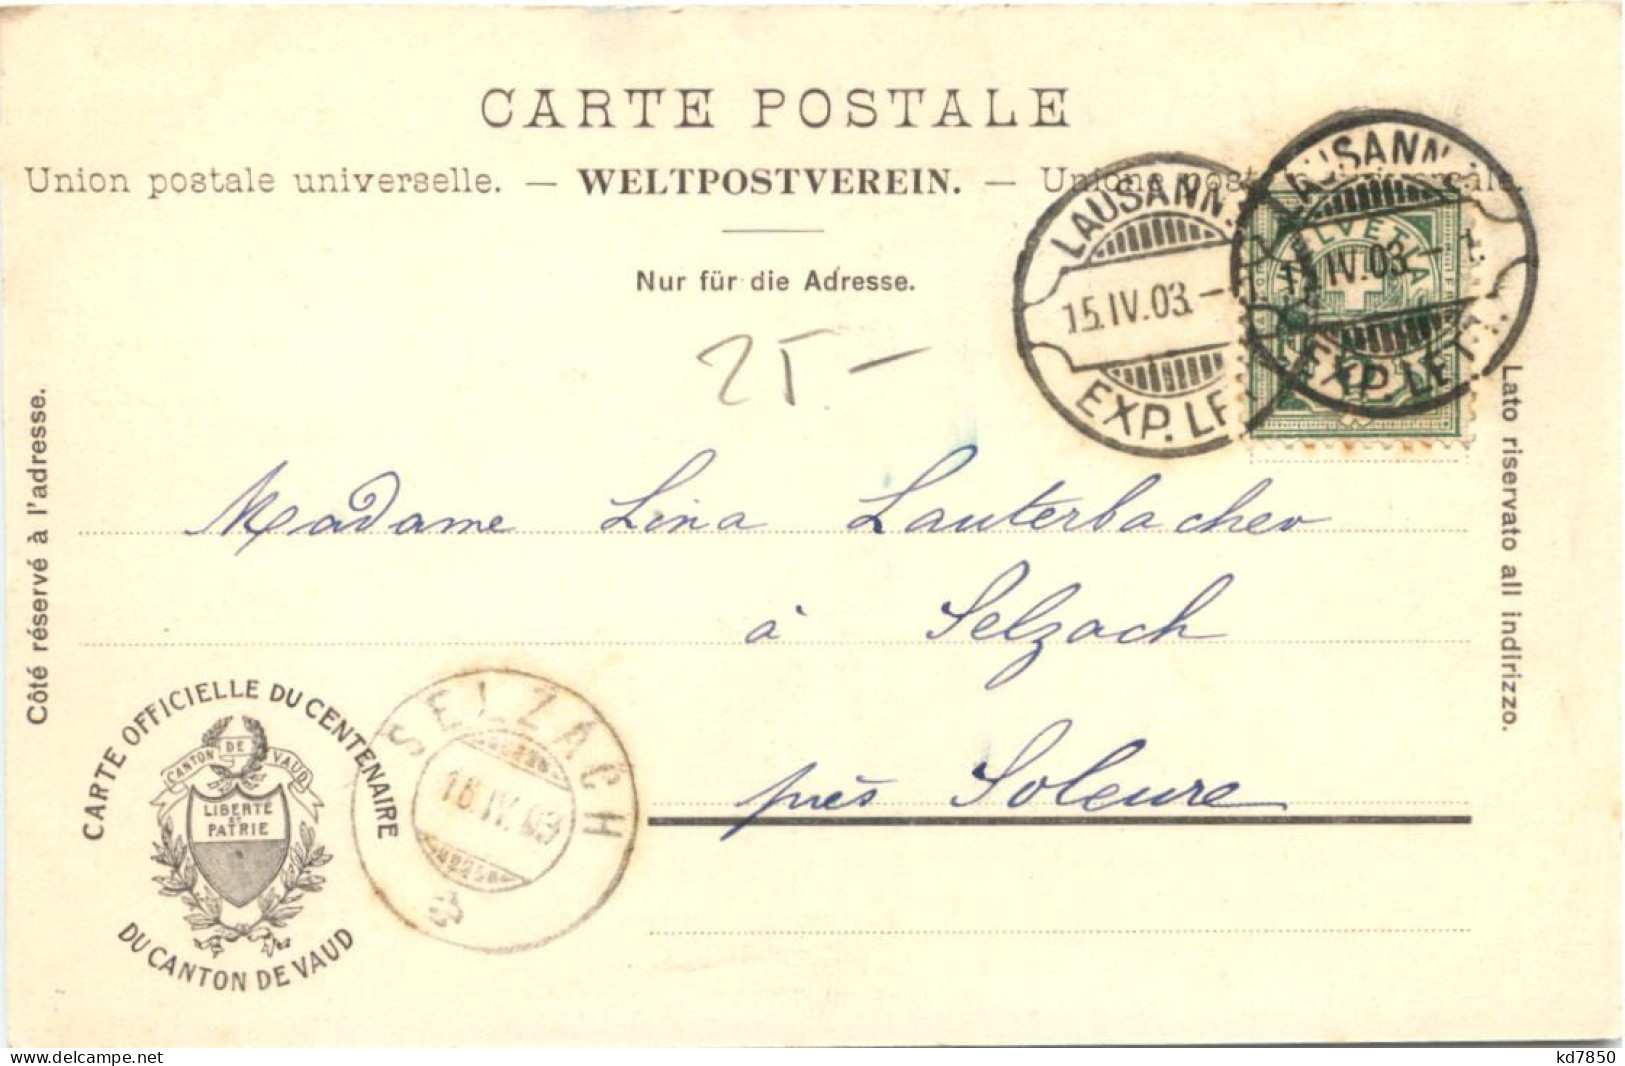 CARTE POSTALE
Union postale universelle. — WELTPOSTVEREIN. — Unione
Nur für die Adresse.
25.—
LAUSANN.
15.IV.03.–
EXP. LF
LAUSANN.
15.IV.03.–1.
EXP. LETT.
HELVETIA
Côté réservé à l'adresse.
Lato riservato all indirizzo.
Madame Lina Lauterbacher
à Selzach
près Soleure
CARTE OFFICIELLE DU CENTENAIRE
CANTON DE VAUD
LIBERTÉ
ET
PATRIE
DU CANTON DE VAUD
SELZACH
16.IV.03
www.delcampe.net
kd7850